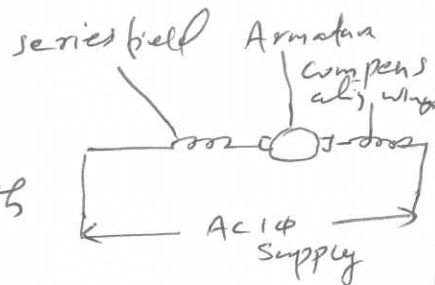 series field
Armature
compens
ating
AC 1φ
Supply